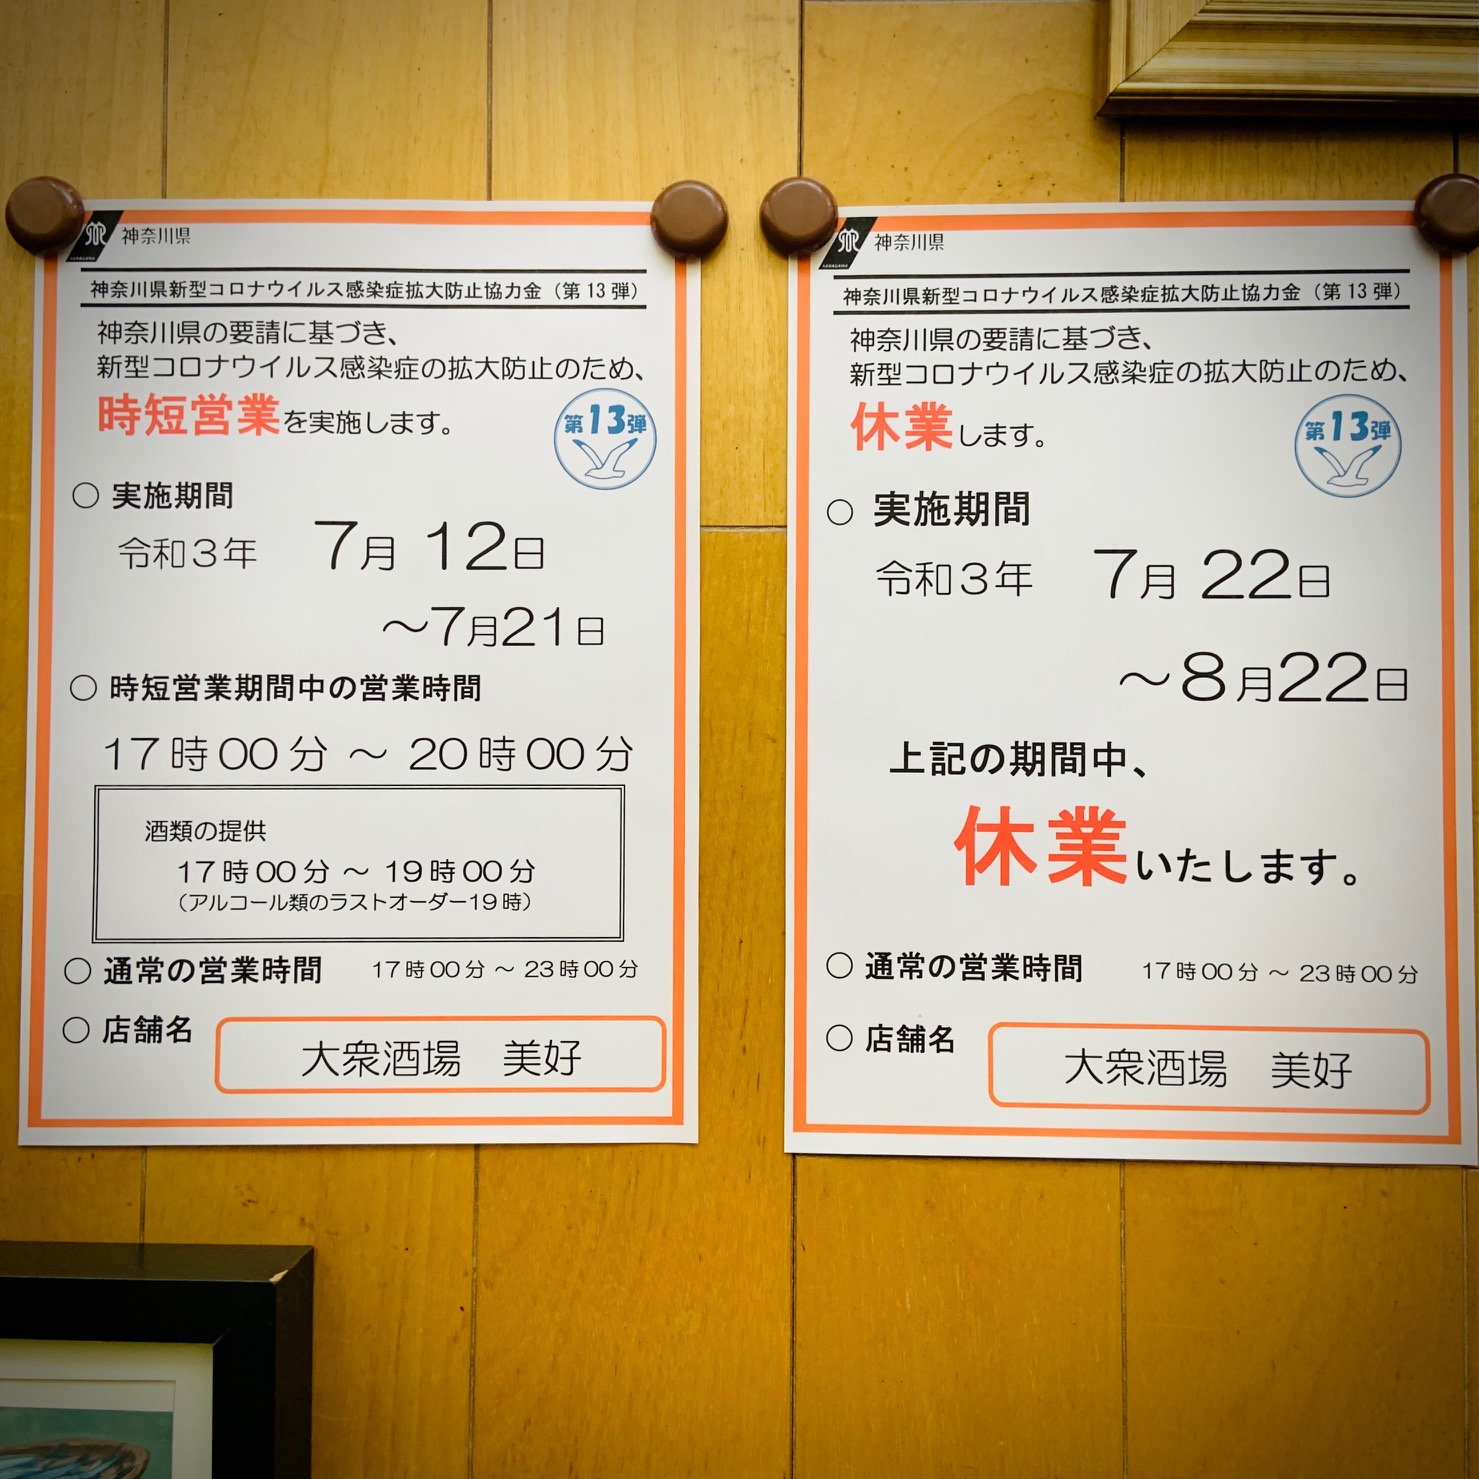 神奈川県
神奈川県新型コロナウイルス感染症拡大防止協力金（第13弾）
神奈川県の要請に基づき、
新型コロナウイルス感染症の拡大防止のため、
時短営業を実施します。
第13弾
○ 実施期間
令和３年 7月 12日
～7月21日
○ 時短営業期間中の営業時間
17時00分 ～ 20時00分
酒類の提供
17時00分 ～ 19時00分
（アルコール類のラストオーダー19時）
○ 通常の営業時間 17時00分 ～ 23時00分
○ 店舗名
大衆酒場 美好
神奈川県
神奈川県新型コロナウイルス感染症拡大防止協力金（第13弾）
神奈川県の要請に基づき、
新型コロナウイルス感染症の拡大防止のため、
休業します。
第13弾
○ 実施期間
令和３年 7月 22日
～8月22日
上記の期間中、
休業いたします。
○ 通常の営業時間 17時00分 ～ 23時00分
○ 店舗名
大衆酒場 美好